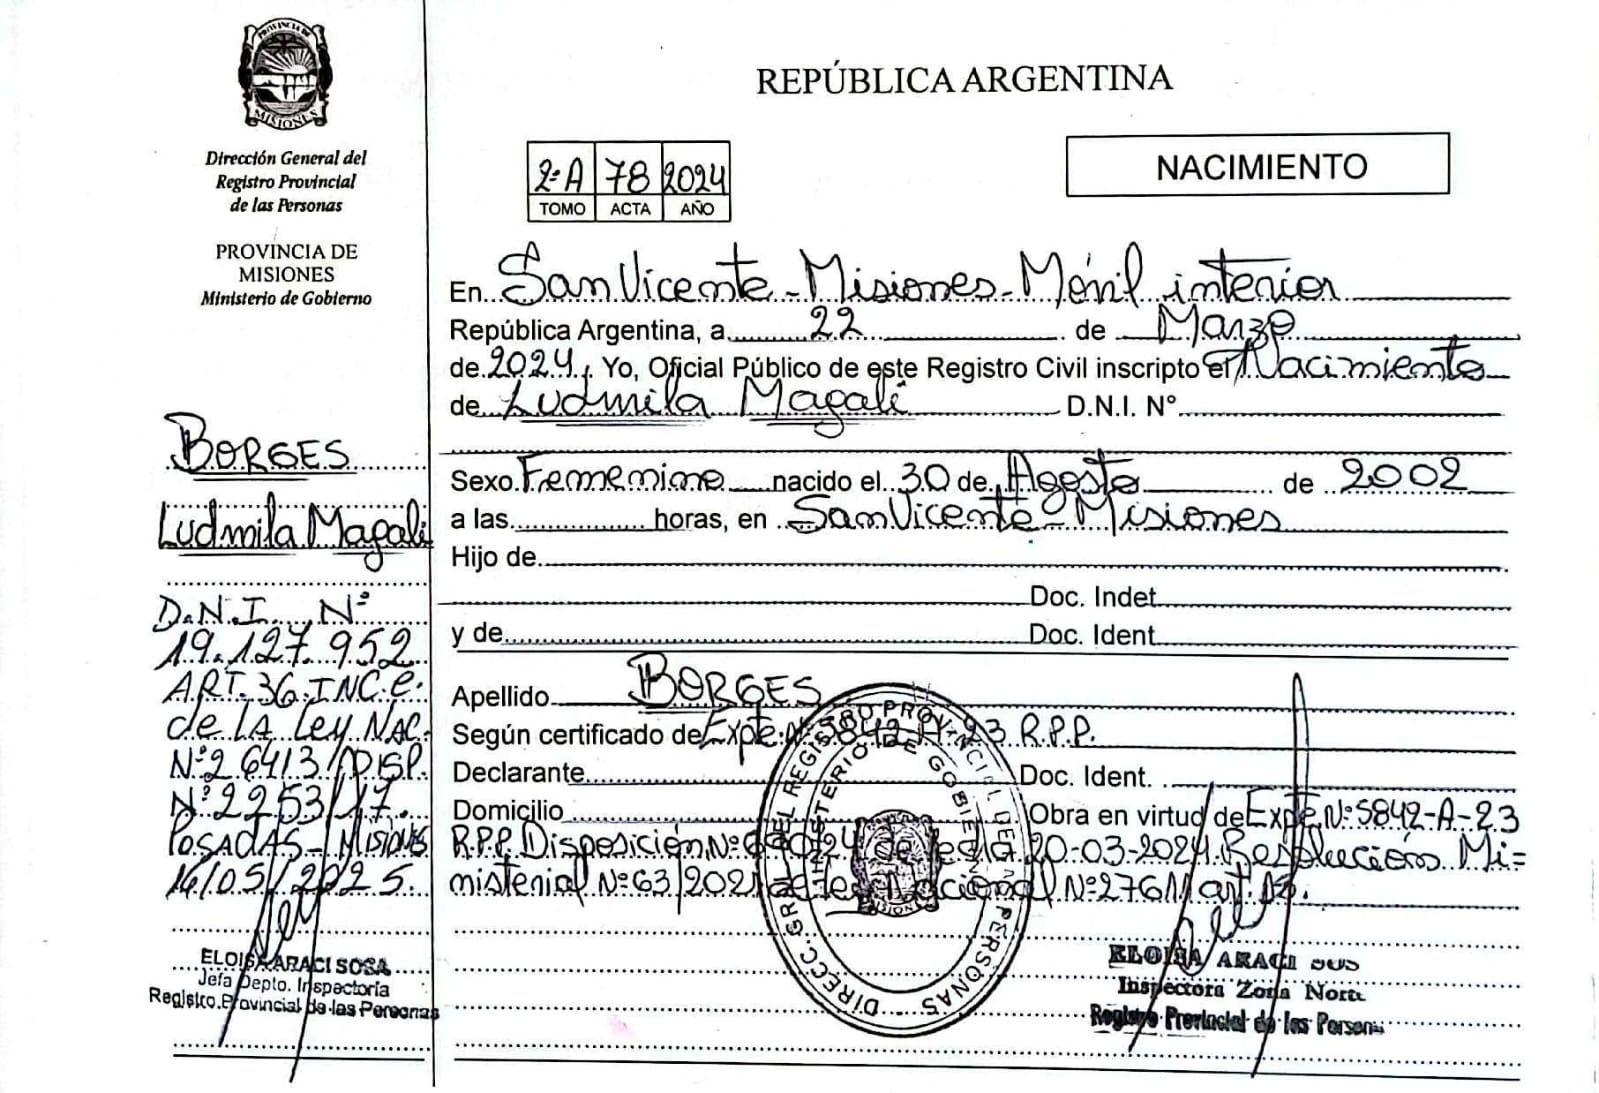 PROVINCIA DE
MISIONES
Dirección General del
Registro Provincial
de las Personas
PROVINCIA DE
MISIONES
Ministerio de Gobierno
BORGES
Ludmila Magali
D.N.I. Nº
19.127.952
ART. 36 INC. e.
de LA Ley NAC.
Nº 26413/DISP.
Nº 2253/17.
POSADAS - MISIONES
16/05/2025.
ELOISA ARACI SOSA
Jefa Depto. Inspectoría
Registro Provincial de las Personas
REPÚBLICA ARGENTINA
2º A 78 2024
TOMO ACTA AÑO
NACIMIENTO
En San Vicente - Misiones - Móvil interior
República Argentina, a 22 de Marzo
de 2024, Yo, Oficial Público de este Registro Civil inscripto el Nacimiento
de Ludmila Magali D.N.I. Nº
Sexo Femenino nacido el 30 de Agosto de 2002
a las horas, en San Vicente - Misiones
Hijo de
Doc. Indet
y de Doc. Ident
Apellido BORGES
Según certificado de Expte. Nº 5842-A-23 R.P.P.
Declarante Doc. Ident.
Domicilio Obra en virtud de Expte. Nº 5842-A-23
R.P.P. Disposición Nº de fecha 20-03-2024. Resolución Mi=
nisterial Nº 63/2021 de ley Nacional Nº 27611 art.
DIRECC. GRAL. DEL REGISTRO PROVINCIAL DE LAS PERSONAS
MINISTERIO DE GOBIERNO
MISIONES
ELOISA ARACI SOS
Inspectora Zona Norte
Registro Provincial de las Persona